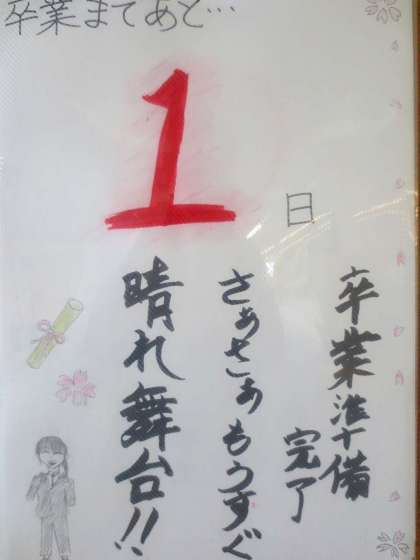 卒業まであと…
1
日
卒業準備
完了
さぁさぁもうすぐ
晴れ舞台!!